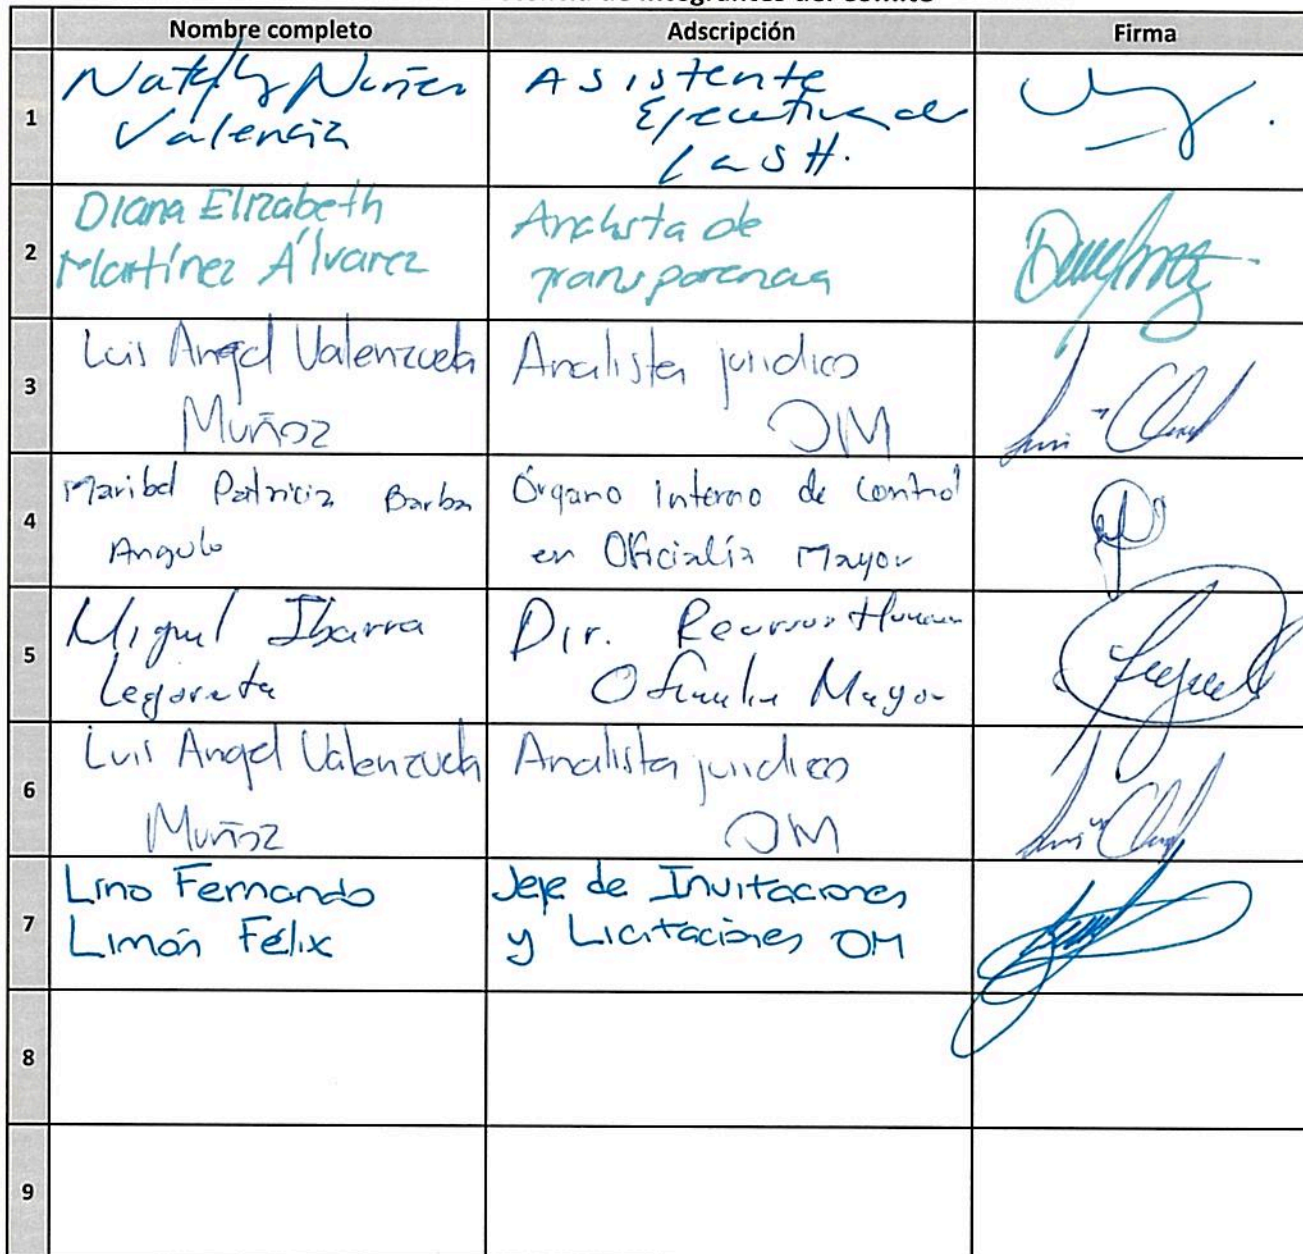 de integrantes del Comité
Nombre completo Adscripción Firma
1
Nataly Nuñez
Valencia
Asistente
Ejecutiva de
la SH.
2
Diana Elizabeth
Martínez Álvarez
Analista de
transparencia
3
Luis Angel Valenzuela
Muñoz
Analista juridico
OM
4
Maribel Patricia Barba
Angulo
Órgano interno de control
en Oficialía Mayor
5
Miguel Ibarra
Legarreta
Dir. Recursos Humanos
Oficialia Mayor
6
Luis Angel Valenzuela
Muñoz
Analista juridico
OM
7
Lino Fernando
Limón Félix
Jefe de Invitaciones
y Licitaciones OM
8
9